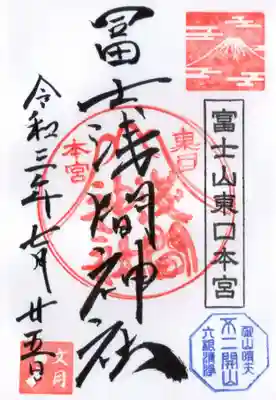 富士山東口本宮
冨士浅間神社
東口
本宮
令和三年七月廿五日
文月
不二開山
六根清浄